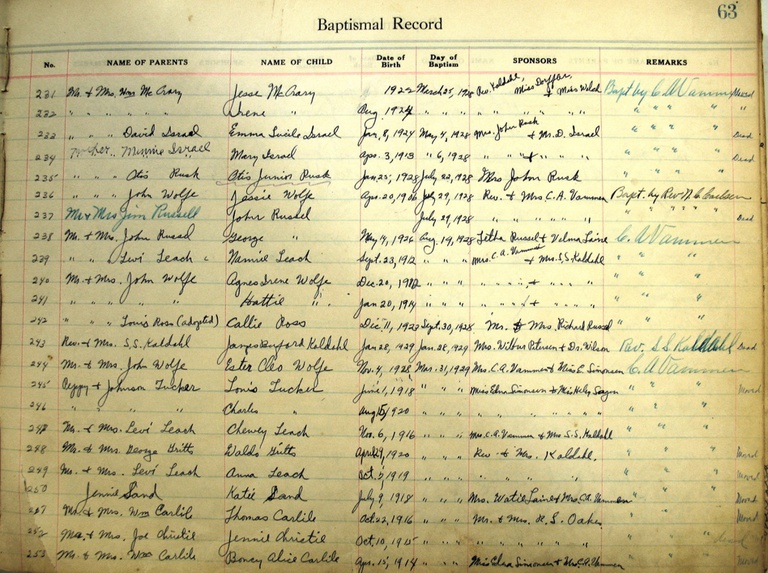 63
Baptismal Record
No. NAME OF PARENTS NAME OF CHILD Date of Birth Day of Baptism SPONSORS REMARKS
231 Mr. & Mrs. Wm McCrary Jesse McCrary 1922 March 25, 1928 Rev. Kaldahl, Miss & Miss Welch Bapt by C A Vammen
232 " " " " Irene " Aug 1924 " " " "
233 " " " David Israel Emma Lucile Israel Jan. 8, 1924 May 4, 1928 Mrs. John Rusk & Mr. D. Israel " " " " Dead
234 Minnie Israel Mary Israel Apr. 3, 1913 " 6, 1928 " " & " " " " " " Dead
235 " " " Otis Rusk Otis Junior Rusk Jan. 25, 1928 July 22, 1928 Mrs John Rusk " " " "
236 " " " John Wolfe Jessie Wolfe Apr. 20, 1926 July 29, 1928 Rev. & Mrs C.A. Vammen Bapt. by Rev N.C. Carlsen
237 Mr & Mrs Jim Russell John Russel July 29, 1928 " " " " " " " " " Dead
238 Mr. & Mrs. John Russel George " May 4, 1926 Aug. 19, 1928 Letha Russel & Velma Laine C. A Vammen
239 " " " Levi Leach Nannie Leach Sept. 23, 1912 " " " Mrs. C.A. Vammen & Mrs. S.S Kaldahl " " "
240 Mr. & Mrs. John Wolfe Agnes Irene Wolfe Dec. 20, 1912 " " " " " " & " " " " "
241 " " " " " Hattie " Jan 20, 1914 " " " " " " & " " " " "
242 " " " Louis Ross (adopted) Callie Ross Dec. 11, 1922 Sept. 30, 1928 Mr. & Mrs. Richard Russel " " "
243 Rev. & Mrs. S.S. Kaldahl James Buford Kaldahl Jan. 28, 1929 Jan. 28, 1929 Mrs. Wilbur Petersen & Dr. Wilson Rev. S S Kaldahl Dead
244 Mr. & Mrs. John Wolfe Ester Cleo Wolfe Nov. 4, 1928 Mar. 31, 1929 Mrs. C.A. Vammen & Miss E. Simonsen C A Vammen
245 & Johnson Tucker Louis Tucker June 1, 1918 " " " Miss Elna Simonsen & Miss " " " Moved
246 " " " " Charles " Aug 15, 1920 " " " " " "
247 Mr. & Mrs. Levi Leach Chewey Leach Nov. 6, 1916 " " " Mrs. C.A. Vammen & Mrs. S.S. Kaldahl " " "
248 Mr. & Mrs. George Gritts Waldo Gritts April 9, 1920 " " " Rev & Mrs. Kaldahl. " " " Moved
249 Mr. & Mrs. Levi Leach Anna Leach Oct. 1919 " " " " " " " " " Moved
250 Jennie Sand Katie Sand July 9, 1918 " " " Mrs. Watie Laine & Mrs. C.A. Vammen " " " Moved
Mr. & Mrs. Wm Carlile Thomas Carlile Oct. 22, 1916 " " " Mr. & Mrs. H. S. Oakes " " " Moved
252 Mr. & Mrs. Joe Christie Jennie Christie Oct. 10, 1915 " " " " " " " " "
253 Mr. & Mrs. Wm Carlile Boncy Alice Carlile Apr. 15, 1914 " " " Miss Elna Simonsen & Mrs. C.A. Vammen " " " Moved